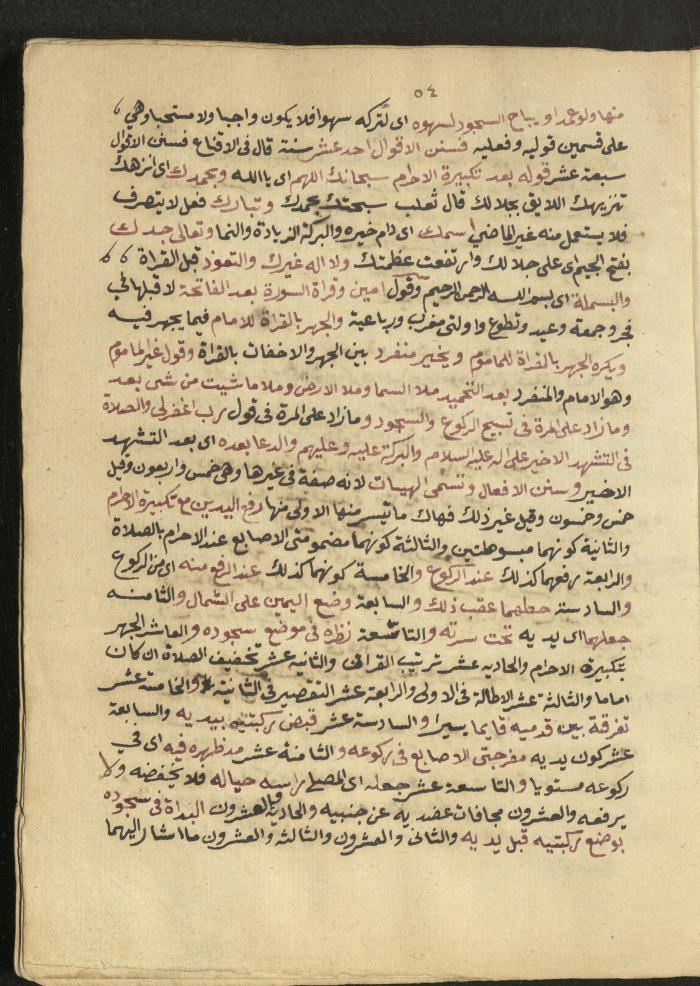 ٥٤
منها ولو عمدا ويباح السجود لسهوه اى لتركه سهوا فلا يكون واجبا ولا مستحبا وهي
على قسمين قوليه وفعليه فسنن الاقوال احد عشر سنة قال فى الاقناع فسنن الاقوال
سبعة عشر قوله بعد تكبيرة الاحرام سبحانك اللهم اى يا الله وبحمدك اى انزهك
تنزيهك اللايق بجلالك قال ثعلب سبحتك بحمدك وتبارك فعل لا يتصرف
فلا يستعمل منه غير الماضي اسمك اى دام خيره والبركة الزيادة والنما وتعالى جدك
بفتح الجيم اى على جلالك وارتفعت عظمتك ولا اله غيرك والتعوذ قبل القراة
والبسملة اى بسم الله الرحمن الرحيم وقول امين وقراة السورة بعد الفاتحة لا قبلها فى
فجر وجمعة وعيد وتطوع واولتى مغرب ورباعية والجهر بالقراة للامام فيما يجهر فيه
ويكره الجهر بالقراة للماموم ويخير منفرد بين الجهر والاخفات بالقراة وقول غير الماموم
وهو الامام والمنفرد بعد التحميد ملا السما وملا الارض وملا ما شيت من شى بعد
وما زاد على المرة فى تسبيح الركوع والسجود وما زاد على المرة فى قول رب اغفر لي والصلاة
فى التشهد الاخير على اله عليه السلام والبركة عليه وعليهم والدعا بعده اى بعد التشهد
الاخير وسنن الافعال وتسمى الهيات لانه صفة فى غيرها وهى خمس واربعون وقيل
خمس وخمسون وقيل غير ذلك فهاك ما تيسر منها الاولى منها رفع اليدين مع تكبيرة الاحرام
والثانية كونهما مبسوطتين والثالثة كونهما مضمومتى الاصابع عند الاحرام بالصلاة
والرابعة رفعهما كذلك عند الركوع والخامسة كونهما كذلك عند الرفع منه اى من الركوع
والسادسة حطهما عقب ذلك والسابعة وضع اليمين على الشمال والثامنه
جعلهما اى يديه تحت سرته والتاسعة نظره فى موضع سجوده والعاشر الجهر
بتكبيرة الاحرام والحاديه عشر ترتيب القراة والثانيه عشر تخفيف الصلاة ان كان
اماما والثالثة عشر الاطالة فى الاولى والرابعة عشر التقصير فى الثانية والخامسة عشر
تفرقة بين قدميه قايما يسيرا والسادسة عشر قبض ركبتيه بيديه والسابعة
عشر كون يديه مفرجتى الاصابع فى ركوعه والثامنة عشر مد ظهره فيه اى فى
ركوعه مستويا والتاسعة عشر جعله اى المصلى راسه حياله فلا يخفضه ولا
يرفعه والعشرون مجافات عضديه عن جنبيه والحاديه والعشرون البداة فى سجوده
بوضع ركبتيه قبل يديه والثانى والعشرون والثالثه والعشرون ما اشار اليهما